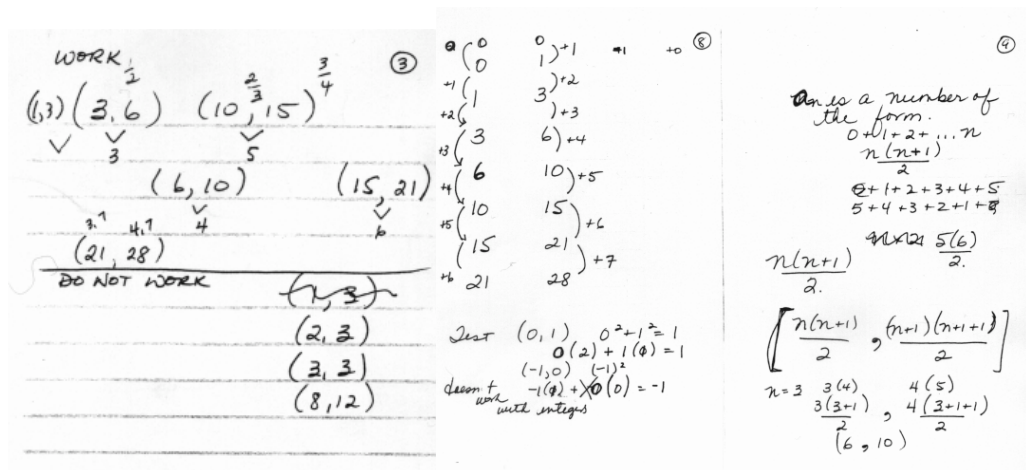 WORK
③
1/2
2/3
3/4
(1,3) (3,6) (10,15)
3
5
(6,10) (15,21)
4
6
3.↑ 4.↑
(21, 28)
DO NOT WORK
(1, 3)
(2, 3)
(3, 3)
(8,12)
⑧
0 0 +1 +0
0 1
+1 1 3 +2
+2 +3
3 6 +4
+3
6 10 +5
+4
10 15
+5 +6
15 21
+7
+6 21 28
Test (0, 1) 0²+1²=1
0(2) + 1(0) = 1
(-1,0) (-1)²
doesn't -1(0) + 0(0) = -1
work
with integers
⑨
an is a number of
the form.
0+1+2+...n
n(n+1)
2
0+1+2+3+4+5
5+4+3+2+1+0
5(6)
2.
n(n+1)
2.
[n(n+1)/2 , (n+1)(n+1+1)/2]
n=3 3(4) 4(5)
3(3+1)/2 , 4(3+1+1)/2
(6, 10)